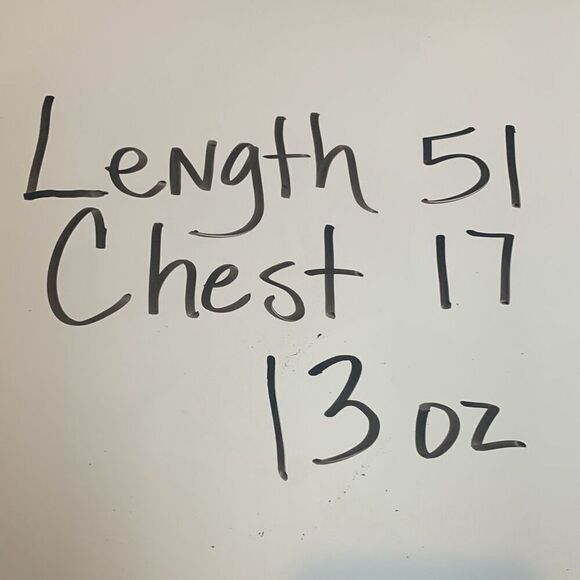 Length 51
Chest 17
13 oz